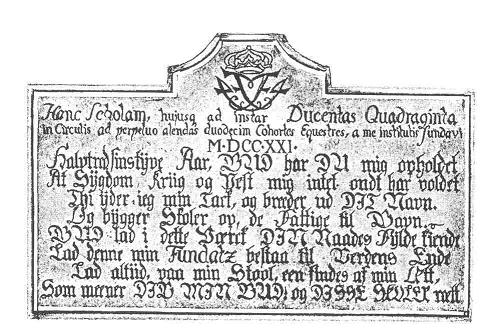 Hanc Scholam, hujusq ad instar Ducentas Quadraginta
in Circulis ad perpetuo alendas duodecim Cohortes Equestres, a me institutis fundavi
M·DCC·XXI·
Halvtredsinstyve Aar, GUD har DU mig opholdet
At Sygdom, Kriig og Pest mig intet ondt har voldet
Thi yder jeg min Tack, og breder ud DIT Navn.
Og bygger Skoler op, de Fattige til Gavn.
GUD lad i dette Værck DIN Naades Fylde kiende
Lad denne min Fundatz bestaa til Verdens Ende
Lad altiid, paa min Skool, een findes af min Lætt,
Som meener DIG MIN GUD: og DISSE SKOLER rætt.